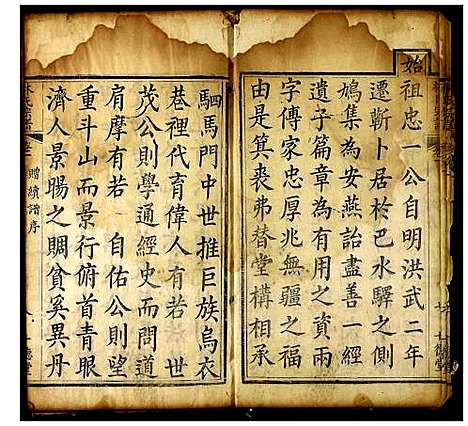 始祖忠一公自明洪武二年
遷蘄卜居於巴水驛之側
鳩集為安燕詒盡善一經
遺子篇章為有用之資兩
字傳家忠厚兆無疆之福
由是箕裘弗替堂構相承
駟馬門中世推巨族烏衣
巷裡代育偉人有若 世
茂公則學通經史而問道
肩摩有若 自佑公則望
重斗山而景行俯首青眼
濟人景暘之賙貧奚異丹
贈續譜序